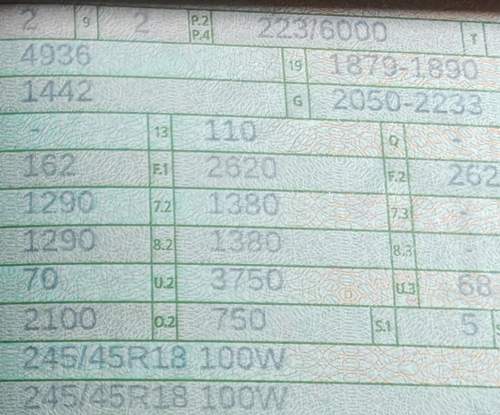 2 9 2 P.2 P.4 223/6000 T
4936 19 1879-1890
1442 G 2050-2233
- 13 110 Q -
162 F.1 2620 F.2 262
1290 7.2 1380 7.3 -
1290 8.2 1380 8.3 -
70 U.2 3750 U.3 68
2100 O.2 750 S.1 5
245/45R18 100W
245/45R18 100W